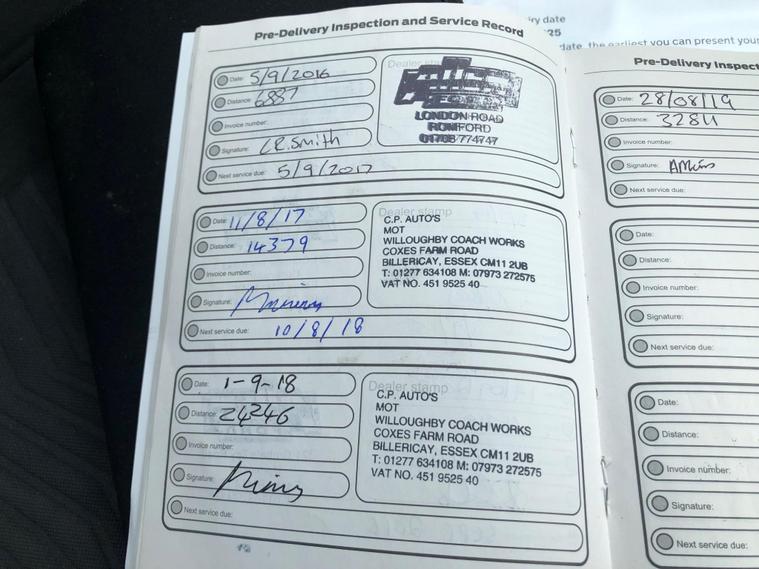 Pre-Delivery Inspection and Service Record
Date: 5/9/2016
Distance: 6887
Invoice number:
Signature: L R. Smith
Next service due: 5/9/2017
Dealer stamp
LONDON ROAD
ROMFORD
01708 774747
Date: 11/8/17
Distance: 14379
Invoice number:
Signature:
Next service due: 10/8/18
Dealer stamp
C.P. AUTO'S
MOT
WILLOUGHBY COACH WORKS
COXES FARM ROAD
BILLERICAY, ESSEX CM11 2UB
T: 01277 634108 M: 07973 272575
VAT NO. 451 9525 40
Date: 1-9-18
Distance: 24246
Invoice number:
Signature:
Next service due:
Dealer stamp
C.P. AUTO'S
MOT
WILLOUGHBY COACH WORKS
COXES FARM ROAD
BILLERICAY, ESSEX CM11 2UB
T: 01277 634108 M: 07973 272575
VAT NO. 451 9525 40
iry date
25
date, the earliest you can present your
Pre-Delivery Inspect
Date: 28/08/19
Distance: 32811
Invoice number:
Signature:
Next service due:
Date:
Distance:
Invoice number:
Signature:
Next service due:
Date:
Distance:
Invoice number:
Signature:
Next service due: